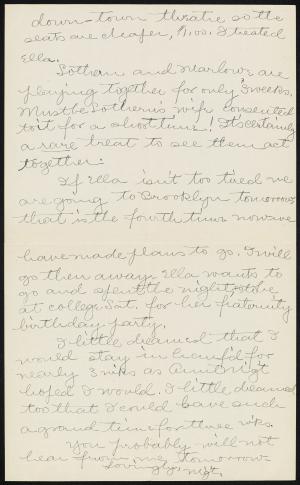 down-town theatre so the
seats are cheaper, $1.00. I treated
Ella.
Sothern and Marlowe are
playing together for only 3 weeks.
Must be Sothern's wife consented
to it for a short time! It's certainly
a rare treat to see them act
together.
If Ella isn't too tired we
are going to Brooklyn tomorrow
that is the fourth time now we
have made plans to go. I will
go then anyway. Ella wants to
go and spend the night
at college Sat. for her fraternity
birthday party.
I little dreamed that I
would stay in for
nearly 3 wks as
hoped I would. I little dreamed
too that I could have such
a grand time for three wks.
You probably will not
hear from me tomorrow.
Lovingly,